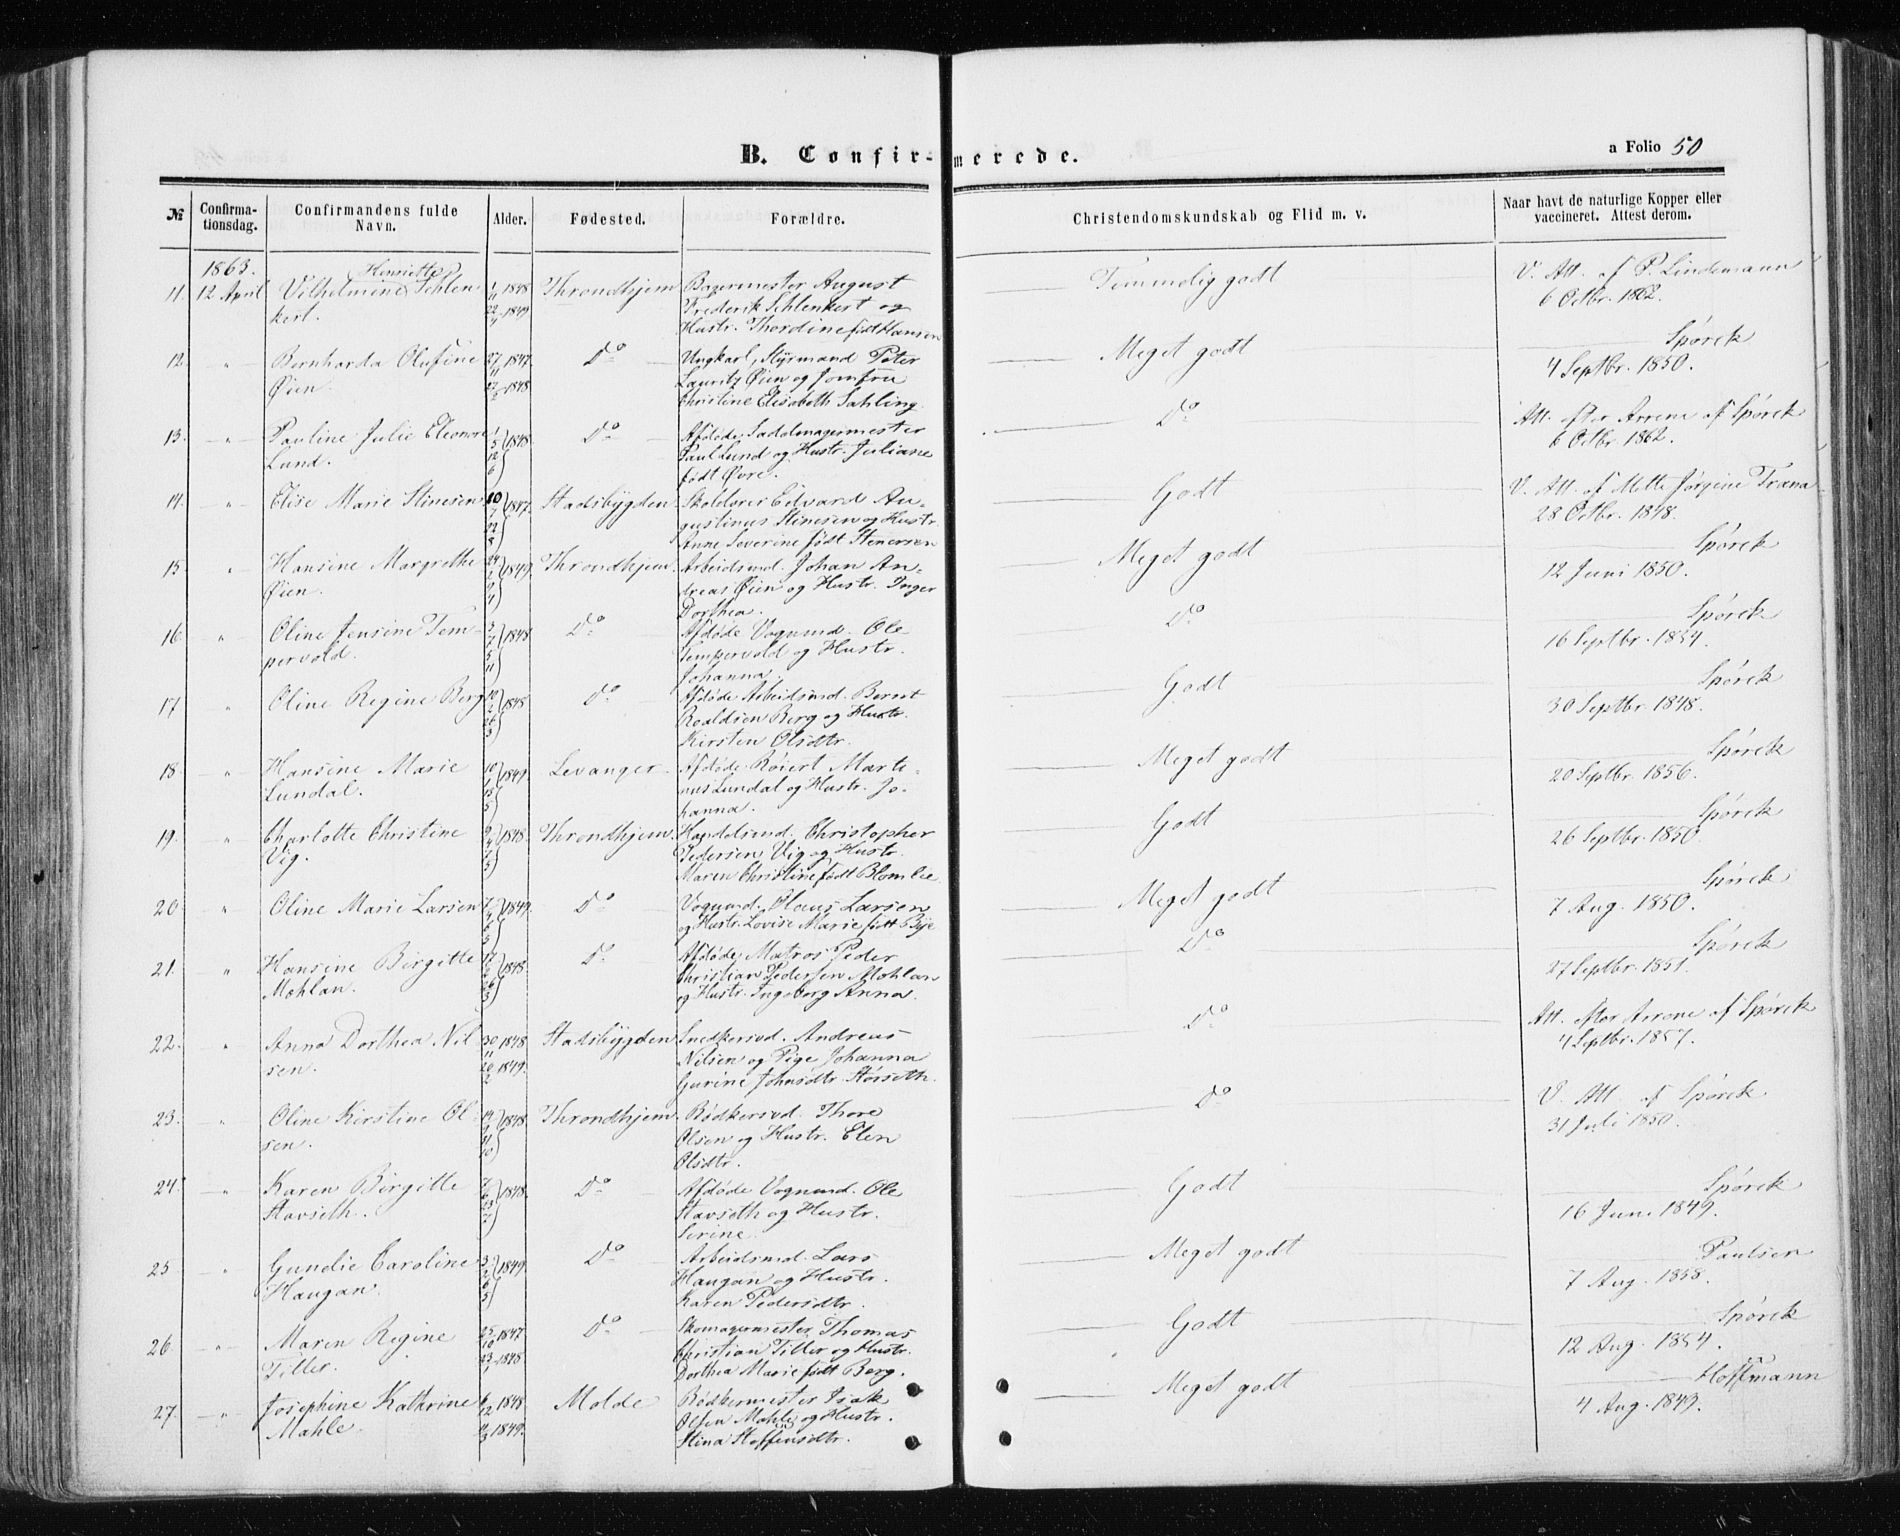 B. Confir-merede.
a Folio 50
№
Confirma-
tionsdag.
Confirmandens fulde
Navn.
Alder.
Fødested.
Forældre.
Christendomskundskab og Flid m. v.
Naar havt de naturlige Kopper eller
vaccineret. Attest derom.
1863.
11. 12 April Vilhelmine Henriette Schlen-
kert.
1/11 1848
22/4 1849
Throndhjem
Bagermester August
Frederik Schlenkert og
Hustr. Thordine født Hansen
Temmelig godt
V. Att. af P. Lindemann
6 Octbr. 1862.
12. " Bernharda Olufine
Øien.
27/11 1847.
1848
Do
Ungkarl, Styrmand Peter
Lauritz Øien og Jomfru
Christine Elisabeth Sahling
Meget godt
Spørck
4 Septbr. 1850.
13. " Pauline Julie Eleonore
Lund.
1/5 12/6 1848
Do
Afdøde Sadelmagermester
Paul Lund og Hustr. Juliane
født Øvre.
Do
Att. efter Arrene af Spørck
6 Octbr. 1862.
14. " Elise Marie Stinesen
10/7 22/8 1847.
Stadsbygden
Skolelærer Edvard Au-
gustinus Stinesen og Hustr.
Anne Severine født Stenersen
Godt
V. Att. af Mette Jørgine Trana
28 Octbr. 1848.
15. " Hansine Margrethe
Øien.
1849.
Throndhjem.
Arbeidsmd. Johan An-
dreas Øien og Hustr. Inger
Dorthea.
Meget godt
Spørck
12 Juni 1850.
16. " Oline Jensine Tem-
pervold.
1848.
Do
Afdøde Vognmd. Ole
Tempervold og Hustr.
Johanna.
Do
Spørck
16 Septbr. 1854.
17. " Oline Regine Berg
10/2 26/3 1848
Do
Afdøde Arbeidsmd. Bernt
Roaldsen Berg og Hustr.
Kirsten Olsdtr.
Godt
Spørck
30 Septbr. 1848.
18. " Hansine Marie
Lundal.
1849.
Levanger.
Afdøde Røiert Marti-
nus Lundal og Hustr. Jo-
hanna.
Meget godt
Spørck
20 Septbr. 1856.
19. " Charlotte Christine
Vig.
1848.
Throndhjem.
Handelsmd. Christopher
Pedersen Vig og Hustr.
Maren Christine født Blomlie
Godt
Spørck
26 Septbr. 1850.
20. " Oline Marie Larsen
1849.
Do
Vognmd. Olaus Larsen
og Hustr. Lovise Marie født Bye
Meget godt
Spørck
7 Aug. 1850.
21. " Hansine Birgitte
Mohlan.
1848.
Do
Afdøde Matros Peder
Christian Pedersen Mohlan
og Hustr. Ingeborg Anna.
Do
Spørck
27 Septbr. 1851.
22. " Anna Dorthea Nil-
sen.
30/11 1848
20/2 1849.
Stadsbygden
Snedkersvd. Andreas
Nilsen og Pige Johanna
Gurine Johnsdtr. Størseth.
Do
Att. efter Arrene af Spørck
4 Septbr. 1857.
23. " Oline Kirstine Ol-
sen.
1848.
Throndhjem.
Bødkersvd. Thore
Olsen og Hustr. Elen
Olsdtr.
Do
V. Att. af Spørck
31 Juli 1850.
24. " Karen Birgitte
Stavseth.
1848.
Do
Afdøde Vognmd. Ole
Stavseth og Hustr.
Serine.
Godt
Spørck
16 Juni 1849.
25 " Gundie Caroline
Haugan.
1849.
Do
Arbeidsmd. Lars
Haugan og Hustr.
Karen Pedersdtr.
Meget godt
Paulsen
7 Aug. 1858.
26. " Maren Regine
Tiller.
25/10 1847
23/1 1848
Do
Skomagermester Thomas
Christian Tiller og Hustr.
Dorthea Marie født Berg.
Godt
Spørck
12 Aug. 1854.
27. " Josephine Kathrine
Mahle.
6/12 1848
1849.
Molde
Bødkermester Isak
Olsen Mahle og Hustr.
Stina Steffensdtr.
Meget godt
Hoffmann
4 Aug. 1849.